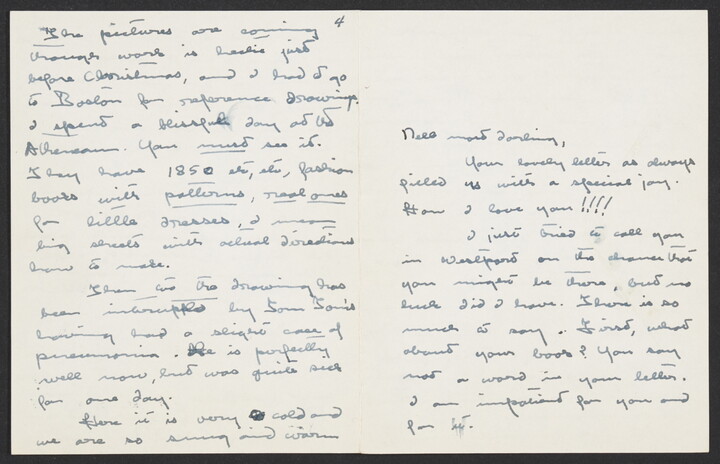 4
The pictures are coming
though work is hectic just
before Christmas, and I had to go
to Boston for reference drawings.
I spent a blissful day at the
Atheneum. You must see it.
They have 1850 etc, etc, fashion
books with patterns, real ones
for little dresses, I mean
big sheets with actual directions
how to make.
Then too the drawing has
been interrupted by Tom Tom's
having had a slight case of
pneumonia. He is perfectly
well now, but was quite sick
for one day.
Here it is very cold and
we are so snug and warm
Nell most darling,
Your lovely letter as always
filled us with a special joy.
How I love you!!!!
I just tried to call you
in Westport on the chance that
you might be there, but no
luck did I have. There is so
much to say. First, what
about your book? You say
not a word in your letter.
I am impatient for you and
for it.